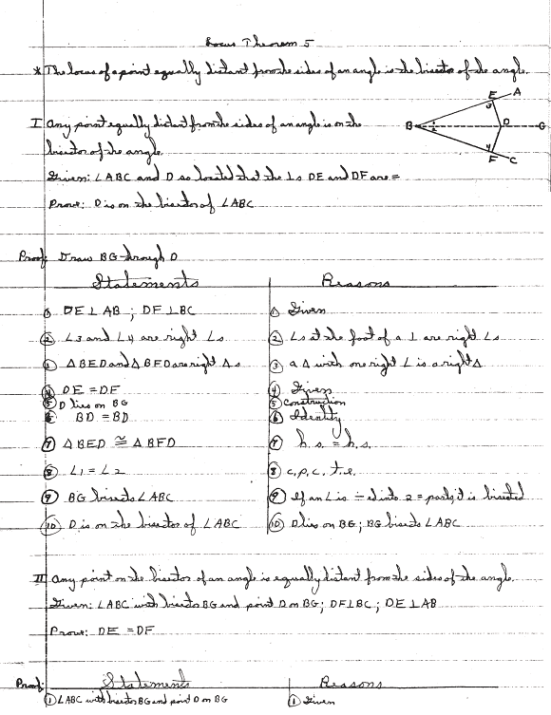 Locus Theorem 5
* The locus of a point equally distant from the sides of an angle is the bisector of the angle.
I Any point equally distant from the sides of an angle is on the
bisector of the angle
Given: ∠ABC and D so located that the ⊥s DE and DF are =
Prove: D is on the bisector of ∠ABC
E A
3
B 1 2 D G
4
F C
Proof: Draw BG through D
Statements Reasons
① DE ⊥ AB ; DF ⊥ BC ① Given
② ∠3 and ∠4 are right ∠s ② ∠s at the foot of a ⊥ are right ∠s
③ △BED and △BFD are right △s ③ a △ with one right ∠ is a right △
④ DE = DF ④ Given
⑤ D lies on BG ⑤ Construction
⑥ BD = BD ⑥ Identity
⑦ △BED ≅ △BFD ⑦ h.s. = h.s.
⑧ ∠1 = ∠2 ⑧ c.p.c.t.e.
⑨ BG bisects ∠ABC ⑨ If an ∠ is ÷d into 2 = parts, it is bisected
⑩ D is on the bisector of ∠ABC ⑩ D lies on BG; BG bisects ∠ABC
II Any point on the bisector of an angle is equally distant from the sides of the angle.
Given: ∠ABC with bisector BG and point D on BG; DF⊥BC; DE⊥AB
Prove: DE = DF
Proof: Statements Reasons
① ∠ABC with bisector BG and point D on BG ① Given